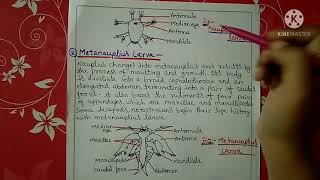 Antennule
Median eye
Antenna
Mandible
Fig:- Nauplius
Larva
MADE WITH
KINEMASTER
2 Metanauplius Larva:-
Nauplius changes into metanauplius and results by
the process of moulting and growth. Its body
is divisible into a broad cephalothorax and an
elongated abdomen, terminating into a pair of caudal
forks. It also bears the rudiments of four pairs
of appendages, which are maxillae and maxillipedes
some decapods, begin their life history
with metanauplius larva.
Median
eye
Antennule
Antenna
Fig:- Metanauplius
Larva
Maxillae
Maxillipedes
Mandible
Caudal fork
Abdomen